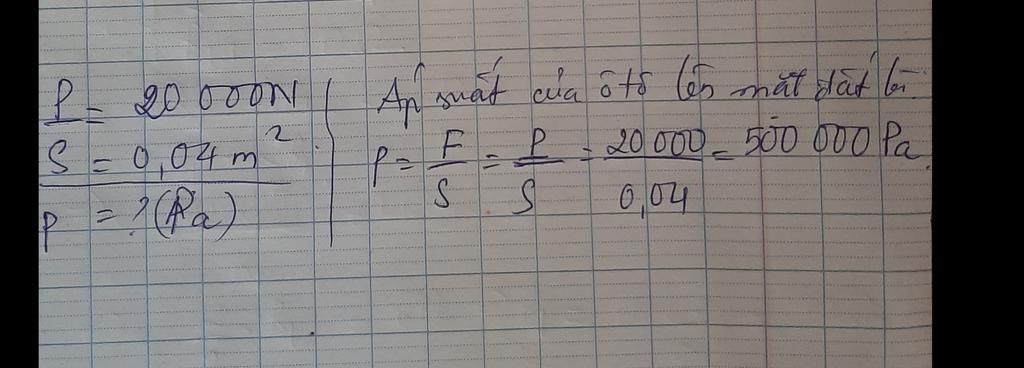 P = 20 000N
S = 0,04 m²
p = ? (Pa)
Áp suất của ôtô lên mặt đất là:
p = F/S = P/S = 20 000/0,04 = 500 000 Pa.